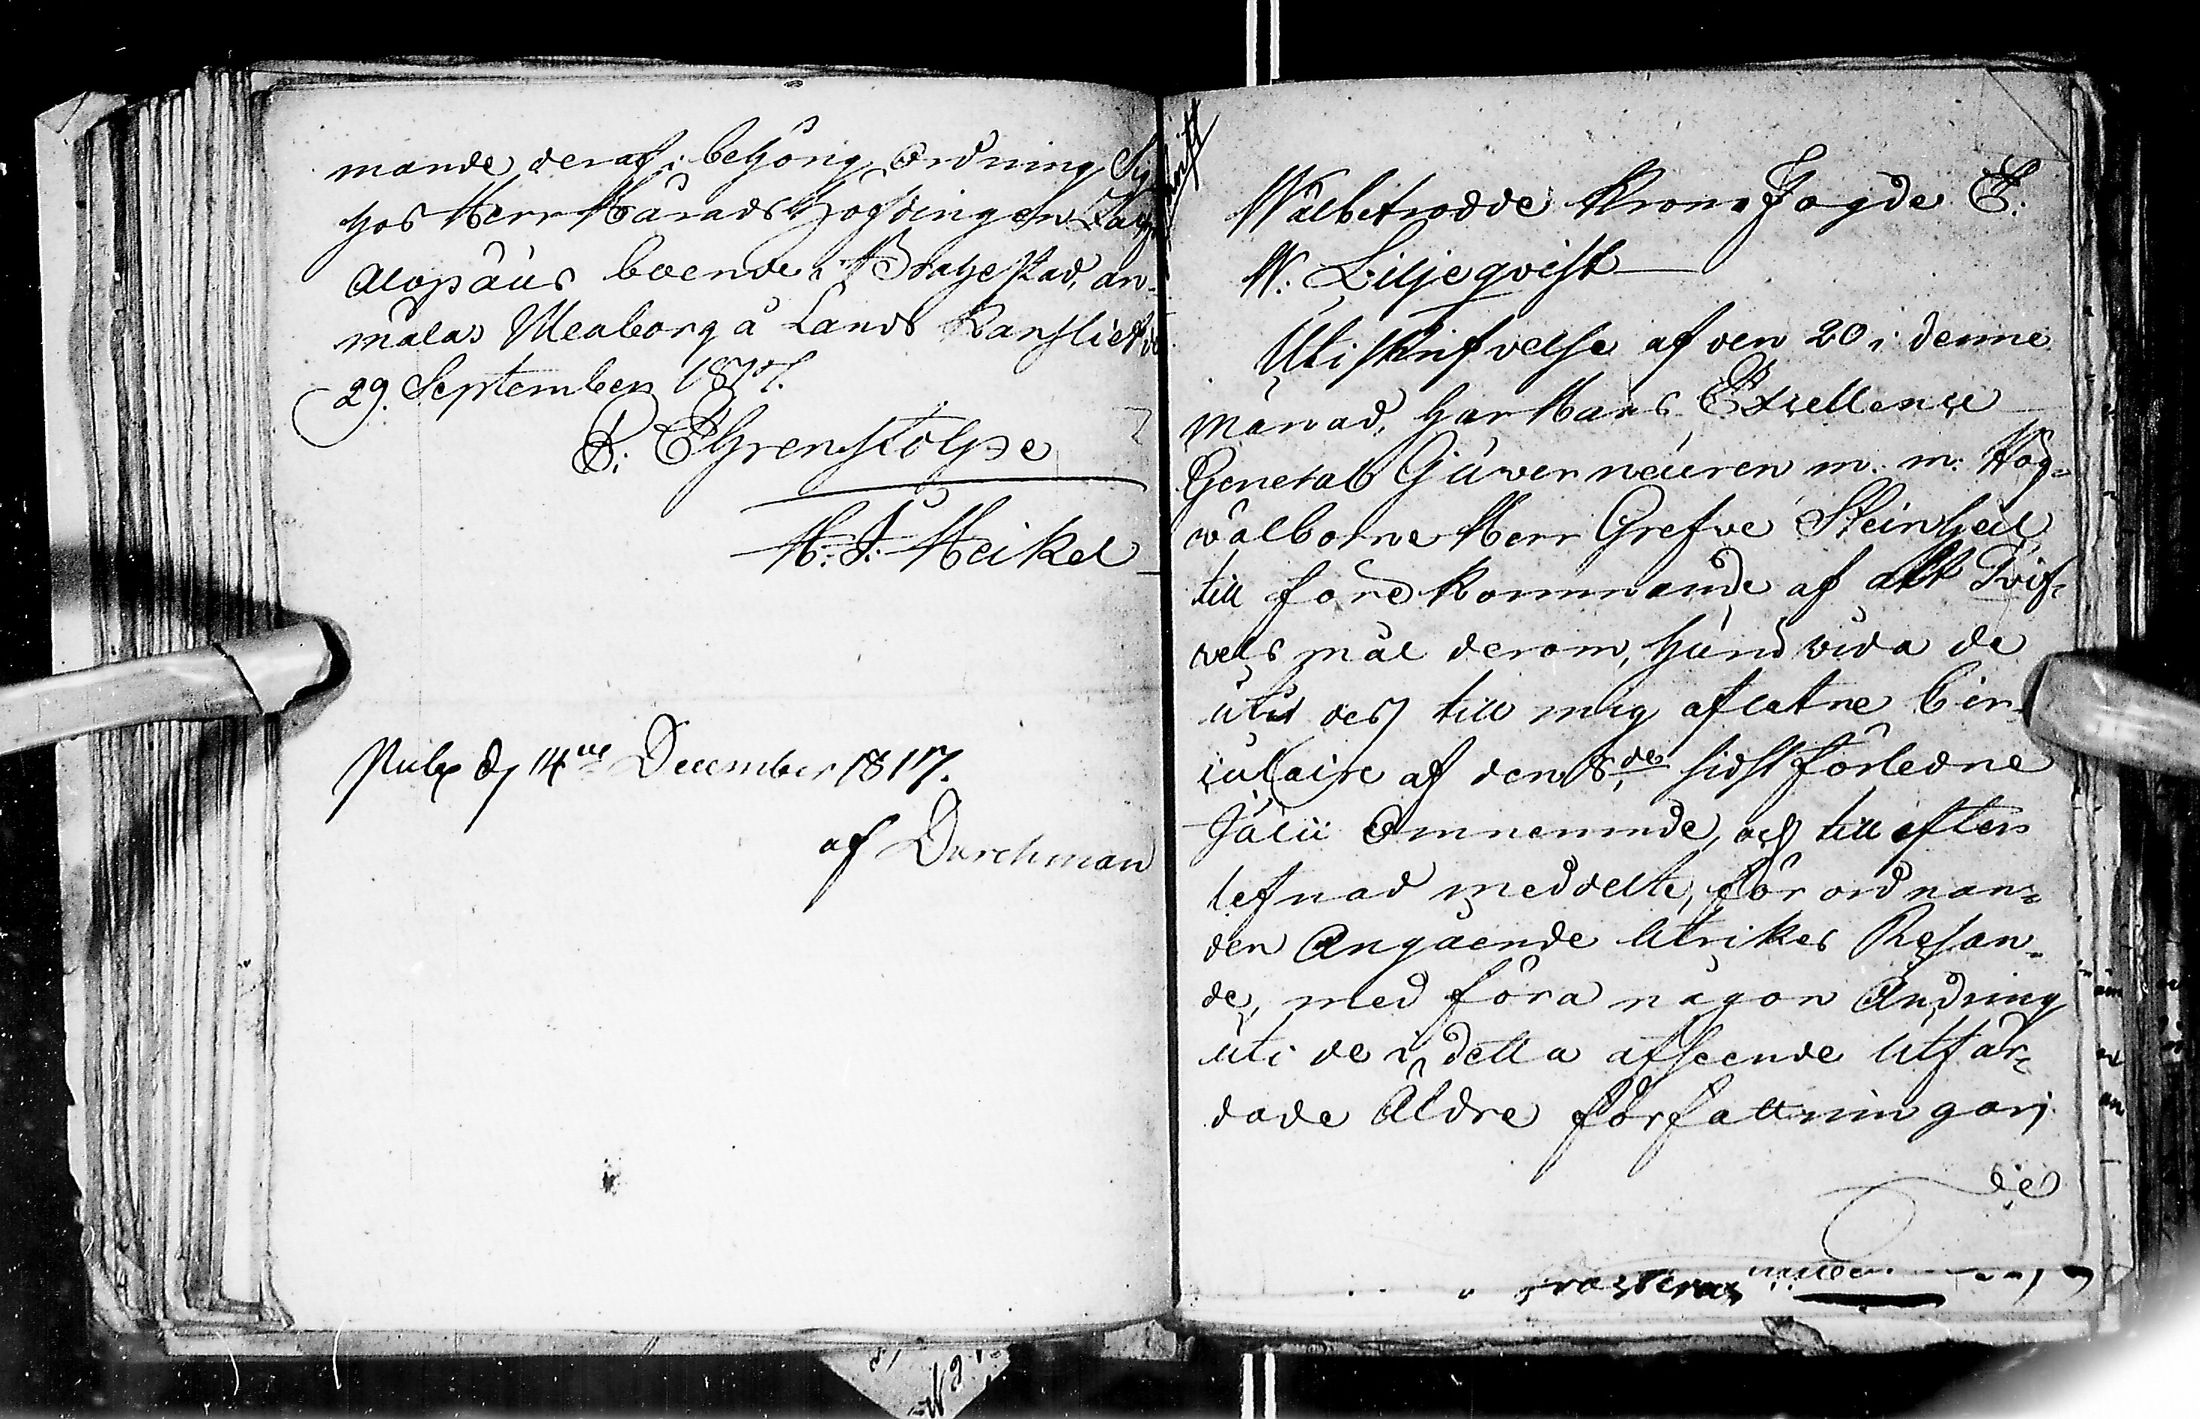 mande deraf i behörig Ordning Sy
hos Herr Härads Höfdingen Lag
Alopæus boende i Brahestad, an-
mälas Uleaborg å Lands Kansliet d
29. September 1817.
P. Ehrenstolpe
H. J. Heikel
Publ d 14de December 1817.
af Durchman
Wälbetrodde Krono Fogde E.
W. Liljeqvist
Uti Skrifvelse af den 20 i denne
månad, har Hans Excellence
General Guverneuren m. m. Hög-
välborne Herr Grefve Steinheil
till förekommande af allt Tvif-
vels mål derom, huruvida de
uti dess till mig aflåtne Cir-
culaire af den 8de sidstförledne
Julii Omnemnde, och till efter
lefnad meddelte, förordnan-
den Angående Utrikes Resan-
de, medföra någon Ändring
uti de i detta afseende Utfär-
dade Äldre författningar;
de